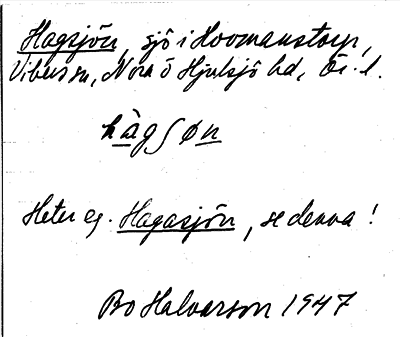 Hagsjön, sjö i Hovmanstorp,
Viby sn, Nora o Hjulsjö hd, Ör. l.
hàgʃøn
Heter eg. Hagasjön, se denna!
Bo Halvarson 1947